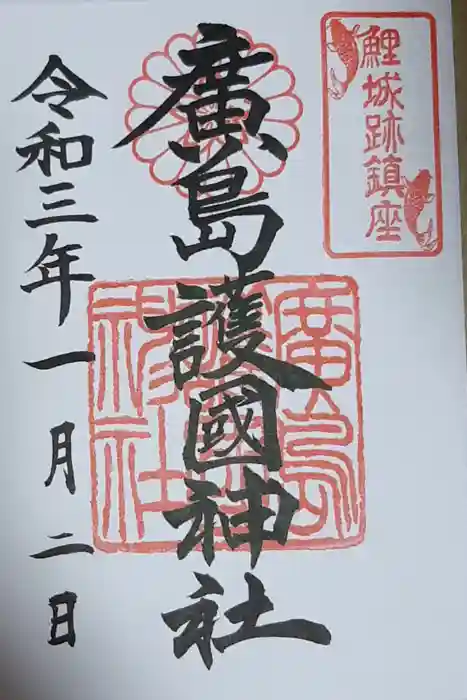 鯉城跡鎮座
廣島護國神社
令和三年一月二日
廣島護國神社